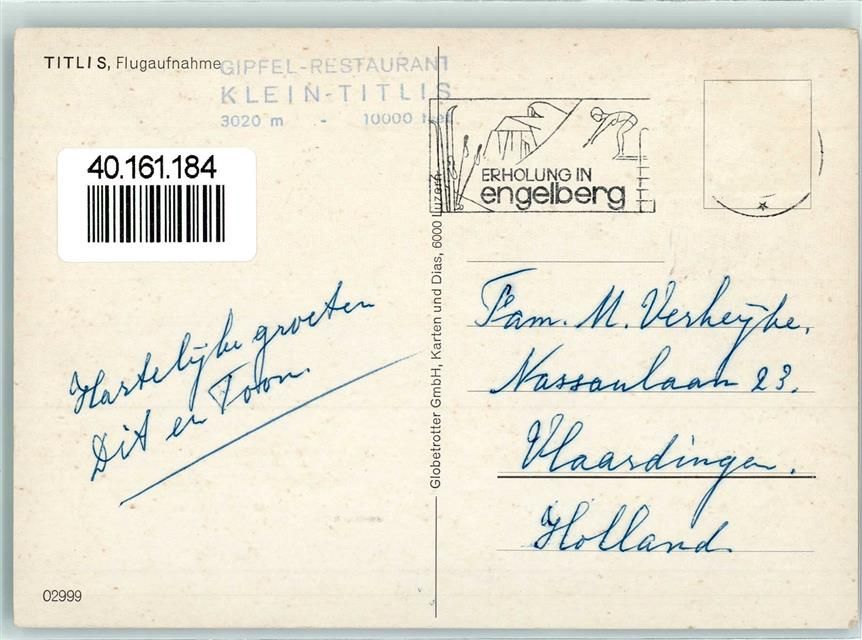 TITLIS, Flugaufnahme
GIPFEL-RESTAURANT
KLEIN-TITLIS
3020 m - 10000 feet
40.161.184
ERHOLUNG IN
engelberg
Globetrotter GmbH, Karten und Dias, 6000 Luzern
Hartelijke groeten
Dit en Toon.
Fam. M. Verheijke,
Nassaulaan 23.
Vlaardingen.
Holland.
02999